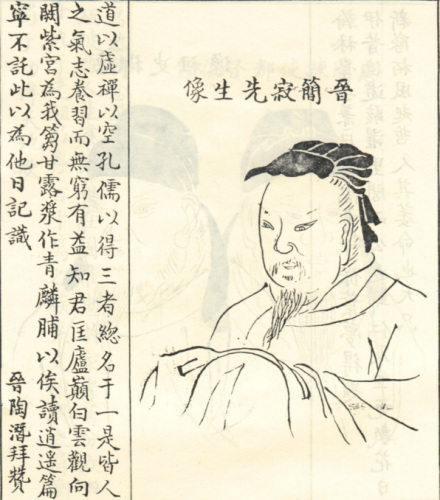 晉簡寂先生像
道以虛禪以空孔儒以得三者緫名于一是皆人
之氣志養習而無窮有益知君匡廬巔白雲觀向
闕紫宮為我芻甘露漿作青麟脯以俟讀逍遙篇
寧不託此以為他日記識
晉陶潛拜贊